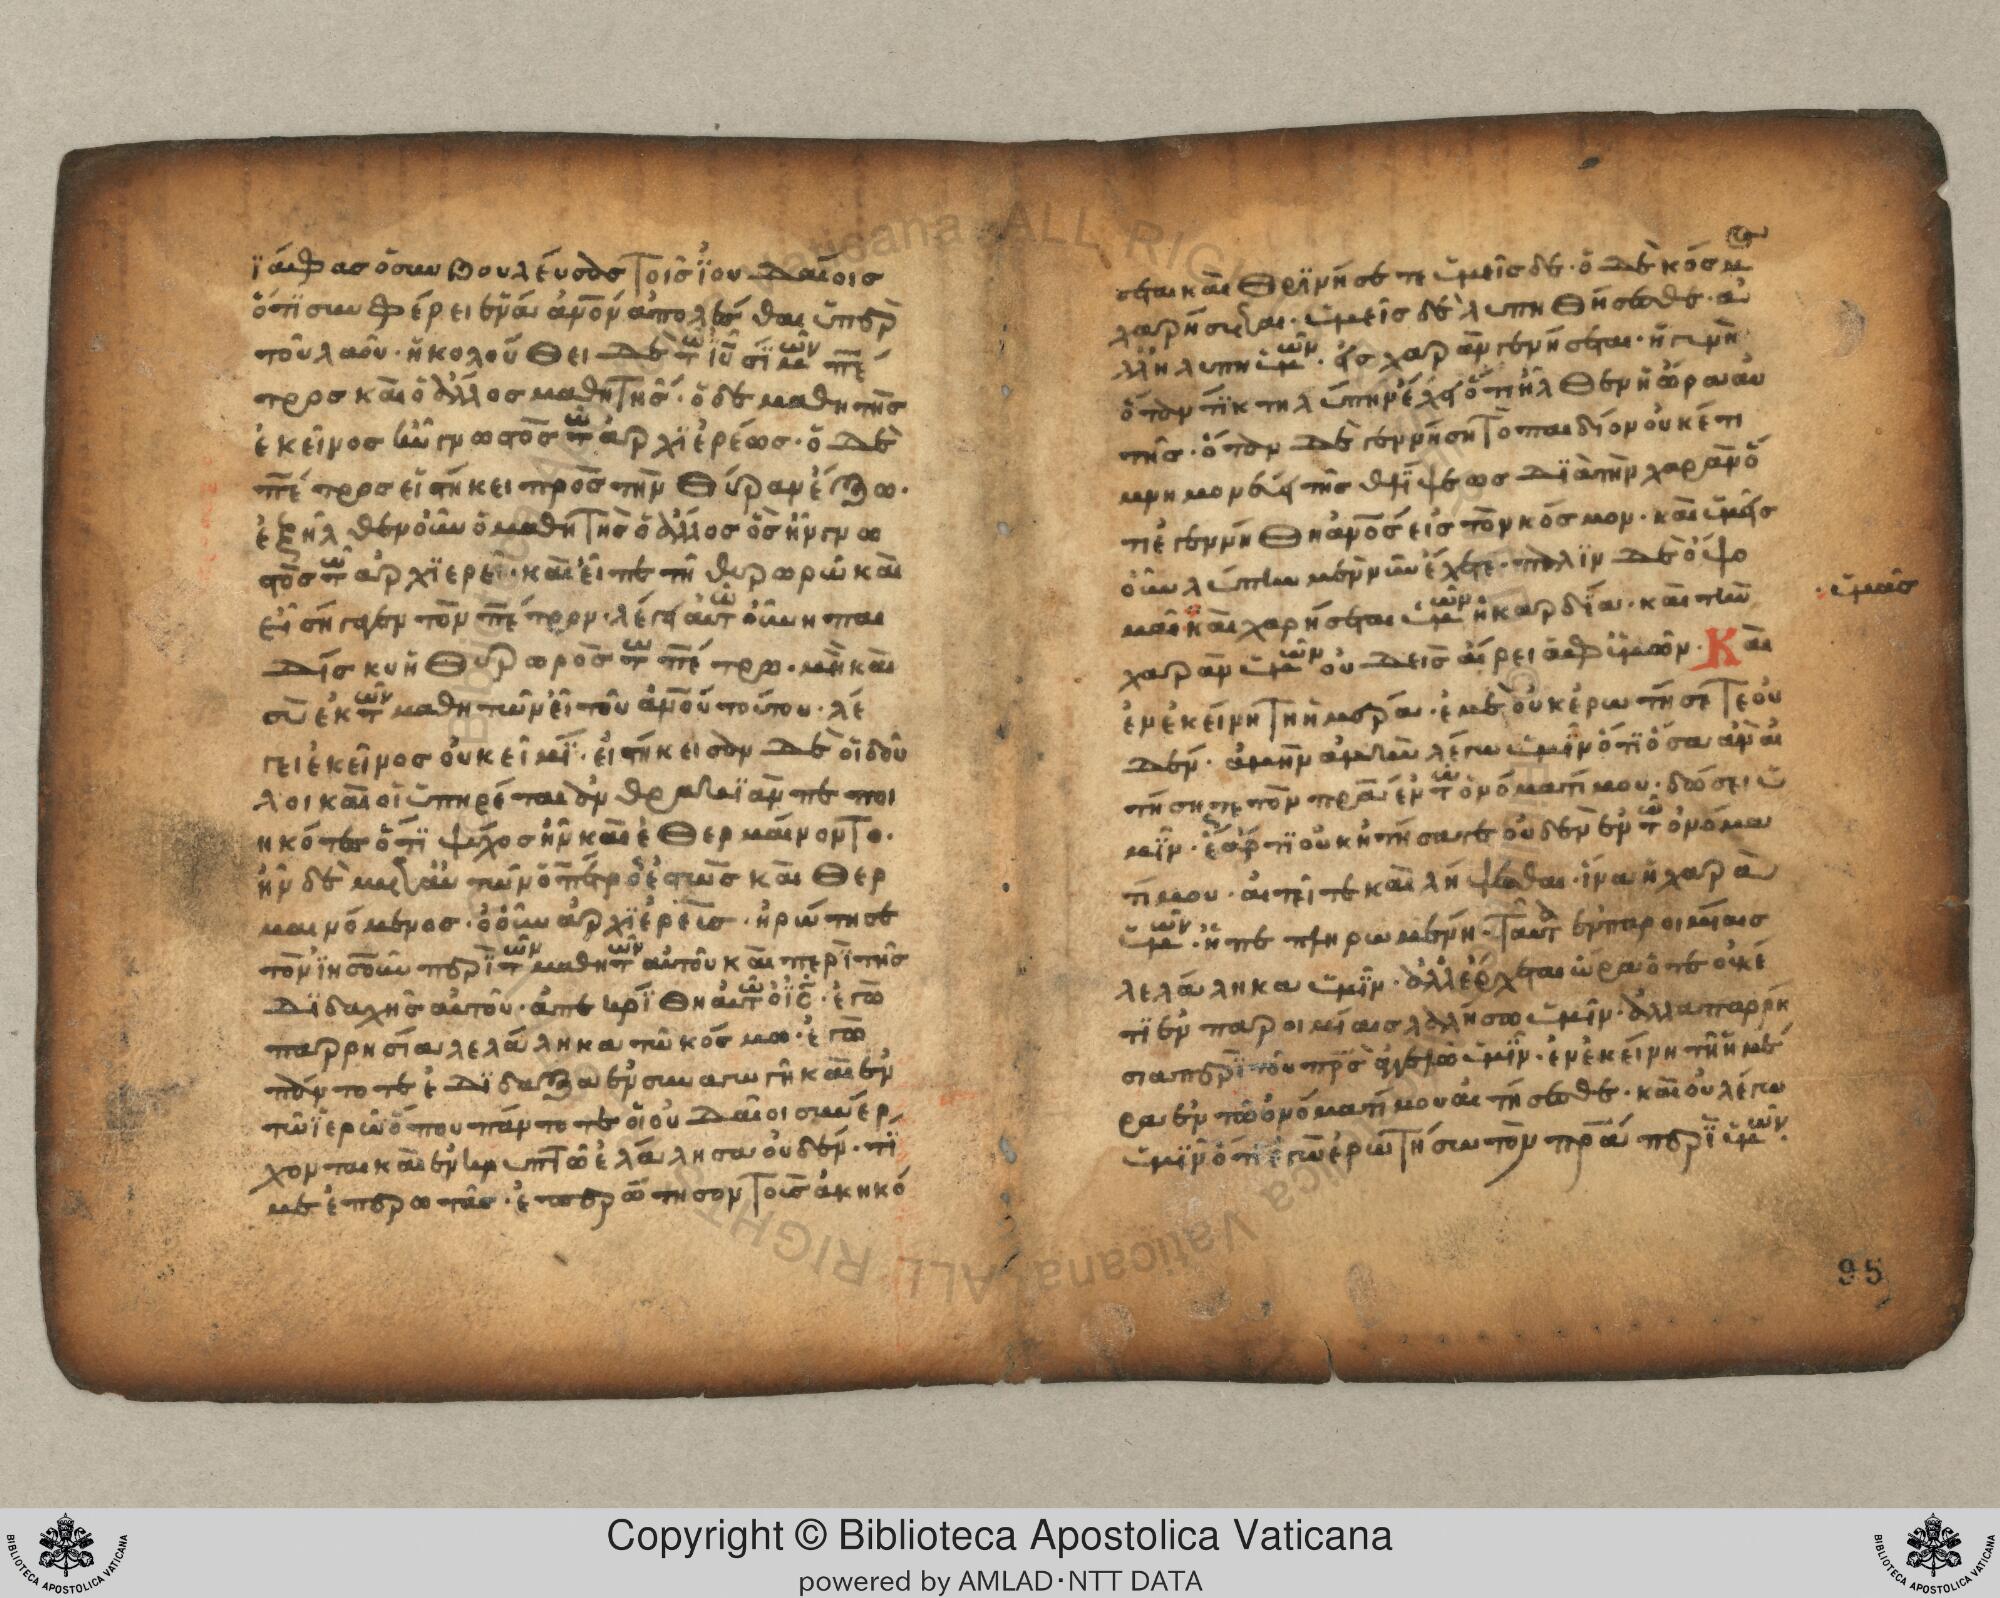 ϊάφας ὁ συμβουλεύσας τοῖς ϊουδαίοις
ὅτι συμφέρει ἕνα ἄνον ἀπολέσθαι ὑπερ
τοῦ λαοῦ· ἠκολούθει δὲ τῶ ιῦ σίμων πέ
τρος καὶ ὁ ἄλλος μαθητής· ὁ δὲ μαθητὴς
ἐκεῖνος ἦν γνωστὸς τῶ ἀρχϊερέως· ὁ δὲ
πέτρος εἱστήκει πρὸς τὴν θύραν ἔξω·
ἐξῆλθεν οὖν ὁ μαθητὴς ὁ ἄλλος ὃς ἦν γνω
στὸς τῶ ἀρχϊερεῖ· καὶ εἶπε τῆ θυρωρῶ καὶ
εἰσήγαγεν τὸν πέτρον· λέγει αὐτῶ οὖν ἡ παι
δίσκη ἡ θυρωρὸς τῶ πέτρω· μὴ καὶ
σὺ ἐκ τῶν μαθητῶν εἶ τοῦ ἀνοῦ τούτου· λέ
γει ἐκεῖνος οὐκ εἰμί· εἱστήκεισαν δὲ οἱ δοῦ
λοι καὶ οἱ ὑπηρέται ἀνθρακϊὰν πεποι
ηκότες ὅτι ψύχος ἦν καὶ ἐθερμαίνοντο·
ἦν δὲ μετ' αὐτῶν ὁ πέτρος ἑστὼς καὶ θερ
μαινόμενος· ὁ οὖν ἀρχϊερεῖς· ἠρώτησε
τὸν ϊησοῦν περὶ τῶν μαθητῶν αὐτοῦ καὶ περὶ τῆς
διδαχῆς αὐτοῦ· ἀπεκρίθη αὐτῶ ὁ ις· ἐγὼ
παρρησία λελάληκα τῶ κόσμω· ἐγὼ
πάντοτε ἐδίδαξα ἐν συναγωγῆ καὶ ἐν
τῶ ἱερῶ ὅπου πάντοτε οἱ ιουδαῖοι συνέρ
χονται καὶ ἐν κρυπτῶ ἐλάλησα οὐδέν· τί
με ἐπερωτᾶς· ἐπερώτησον τοὺς ἀκηκό
σεται καὶ θρϊνήσετε ὑμεῖς δε· ὁ δὲ κόσμ
χαρήσεται· ὑμεῖς δὲ λυπηθήσεσθε· ἀ
λλ' ἡ λύπη ὑμῶν· εἰς χαρὰν γενήσεται· ἡ γυνὴ
ὅταν τίκτη λύπην ἔχει ὅτι ἦλθεν ἡ ὥρα αὐ
τῆς· ὅταν δὲ γεννήση τὸ παιδίον οὐκέτι
μνημονεύει τῆς θλίψεως διὰ τὴν χαρὰν ὅ
τι ἐγεννήθη ἄνος εἰς τὸν κόσμον· καὶ ὑμεῖς
οὖν λύπην μὲν νῦν ἔχετε· πάλιν δὲ ὄψο
μαι καὶ χαρήσεται ὑμῶν ἡ καρδία· καὶ τὴν
· ὑμᾶς
χαρὰν ὑμῶν οὐδεὶς αἴρει ἀφ' ὑμῶν· Καὶ
ἐν ἐκείνη τῆ ἡμέρα· ἐμὲ οὐκ ἐρωτήσετε οὐ
δέν· ἀμὴν ἀμὴν λέγω ὑμῖν ὅτι ὅσα ἂν αἰ
τήσητε τὸν πρα ἐν τῶ ὀνόματί μου· δώσει ὑ
μῖν· ἕως ἄρτι οὐκ ἠτήσατε οὐδὲν ἐν τῶ ὀνόμα
τί μου· αἰτεῖτε καὶ λήψεσθαι· ἵνα ἡ χαρὰ
ὑμῶν· ἦ πεπληρωμένη· Ταῦτα ἐν παροιμίαις
λελάληκα ὑμῖν· ἀλλ' ἔρχεται ὥρα ὅτε οὐκέ
τι ἐν παροιμίαις λαλήσω ὑμῖν· ἀλλὰ παρρη
σία περὶ τοῦ πρς ἀναγγελῶ ὑμῖν· ἐν ἐκείνη τῆ ἡμέ
ρα ἐν τῶ ὀνόματί μου αἰτήσεσθε· καὶ οὐ λέγω
ὑμῖν ὅτι ἐγὼ ἐρωτήσω τὸν πρα περὶ ὑμῶν·
95
Copyright © Biblioteca Apostolica Vaticana
powered by AMLAD·NTT DATA
BIBLIOTECA APOSTOLICA VATICANA
BIBLIOTECA APOSTOLICA VATICANA